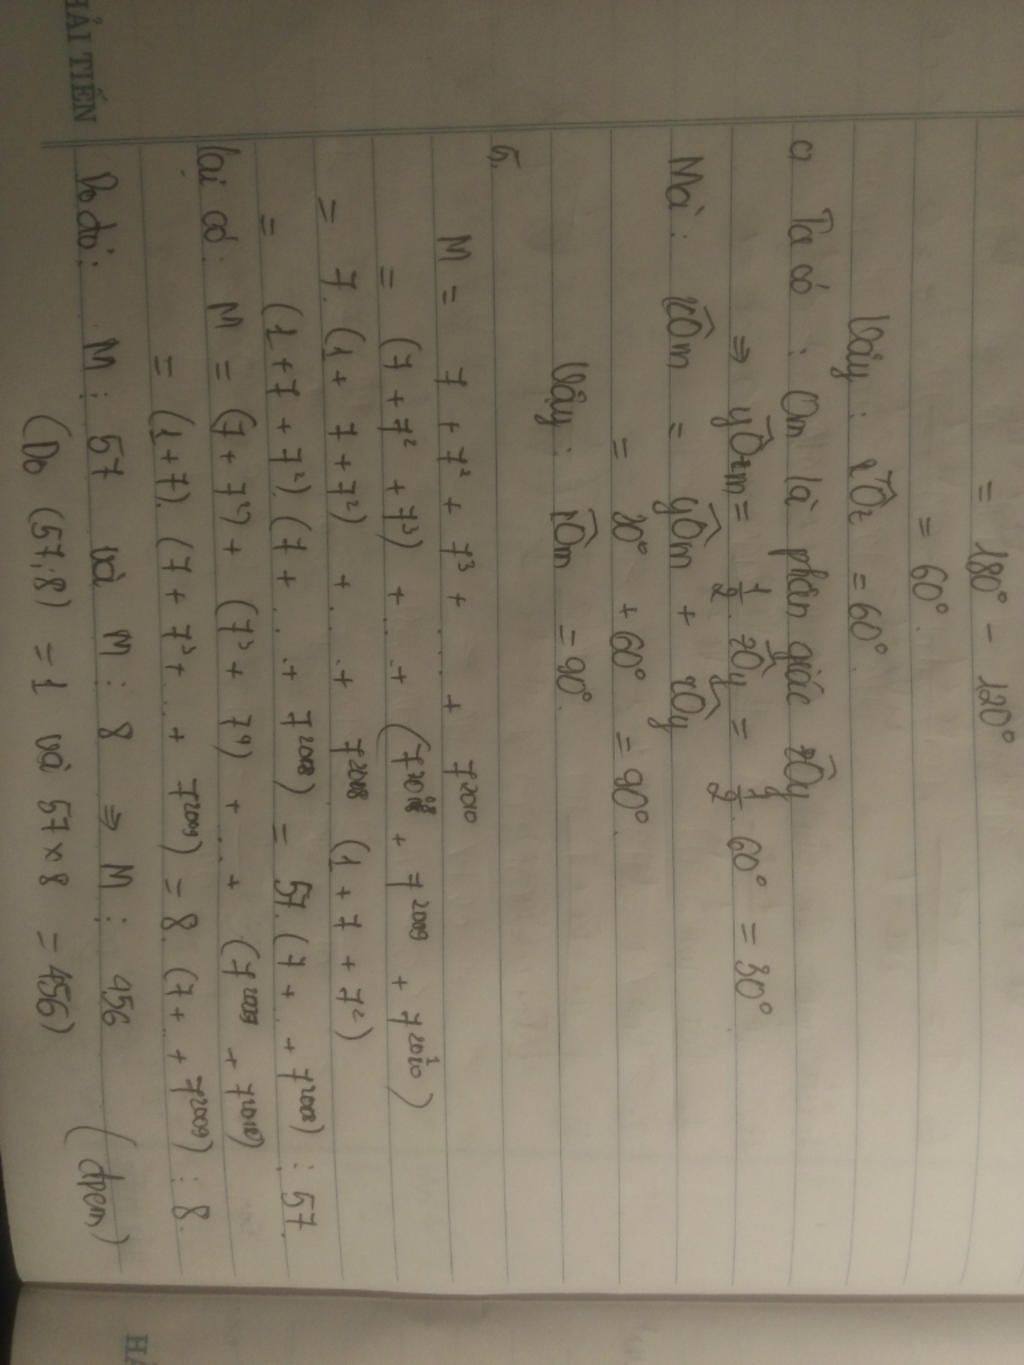 = 180° - 120°
= 60°.
Vậy: xÔz = 60°.
c) Ta có : Om là phân giác zÔy
⇒ yÔm = 1/2 . zÔy = 1/2 . 60° = 30°
Mà: xÔm = yÔm + xÔy
= 30° + 60° = 90°.
Vậy: xÔm = 90°.
5.
M = 7 + 7² + 7³ + .... + 7²⁰¹⁰
= (7 + 7² + 7³) + ... + (7²⁰⁰⁸ + 7²⁰⁰⁹ + 7²⁰¹⁰)
= 7. (1 + 7 + 7²) + ... + 7²⁰⁰⁸ (1 + 7 + 7²)
= (1 + 7 + 7²). (7 + ... + 7²⁰⁰⁸) = 57. (7 + ... + 7²⁰⁰⁸) ⋮ 57.
lại có: M = (7 + 7²) + (7³ + 7⁴) + ... + (7²⁰⁰⁹ + 7²⁰¹⁰)
= (1+7). (7 + 7³ + ... + 7²⁰⁰⁹) = 8. (7 + ... + 7²⁰⁰⁹) ⋮ 8.
Do đó: M ⋮ 57 và M ⋮ 8 ⇒ M ⋮ 456 (đpcm)
(Do (57;8) = 1 và 57 x 8 = 456)
HẢI TIẾN
HẢ